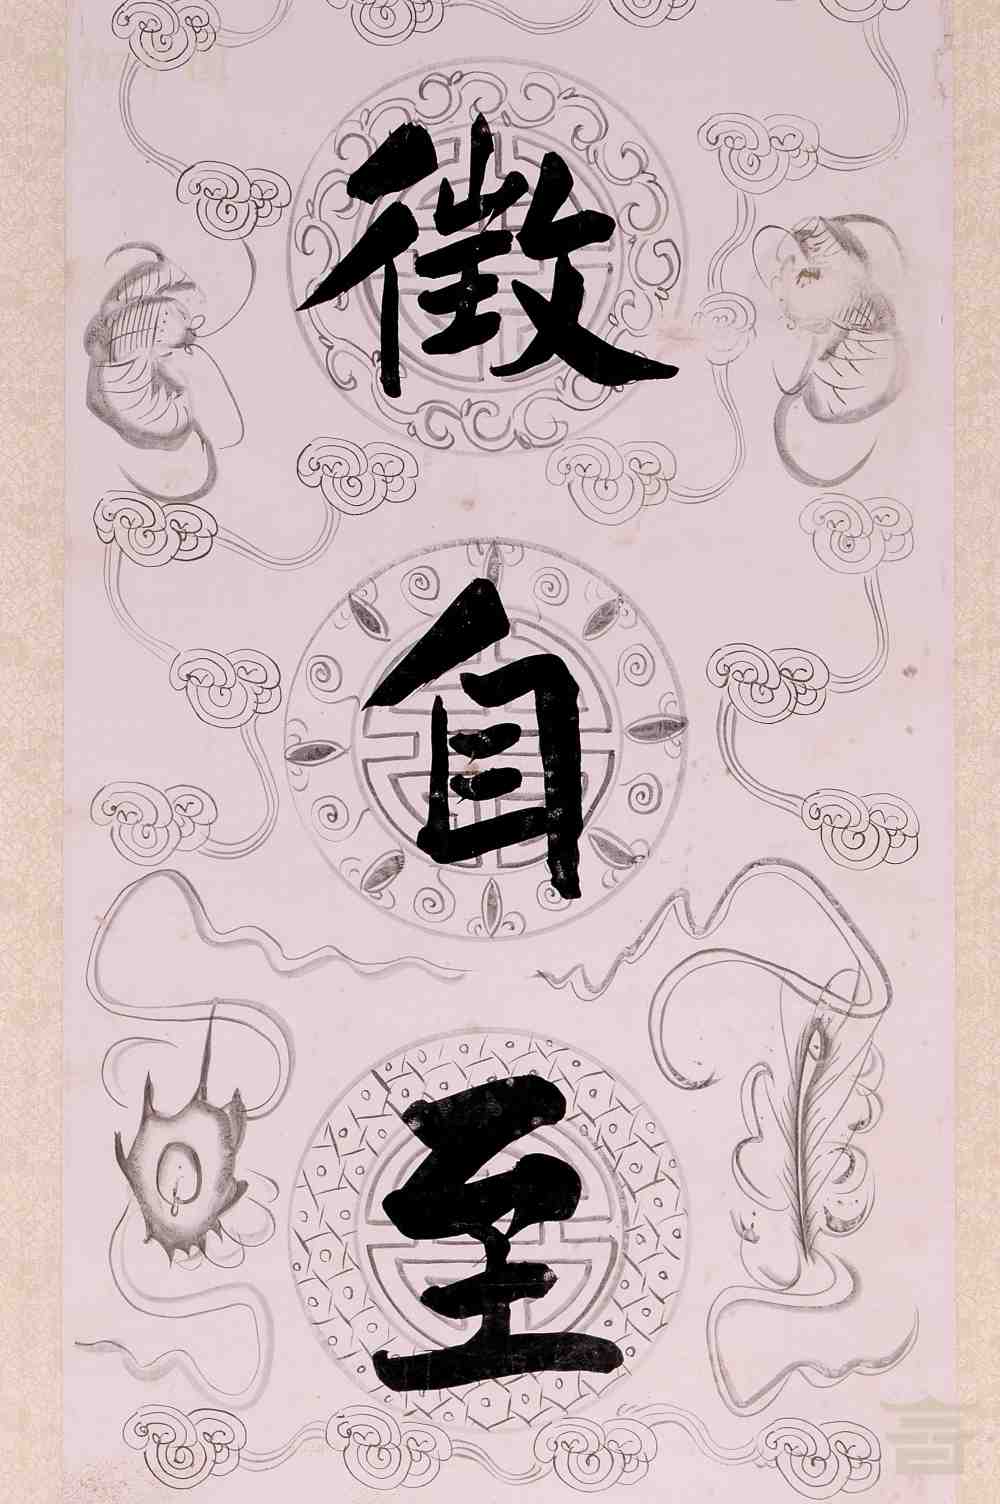 徵自至